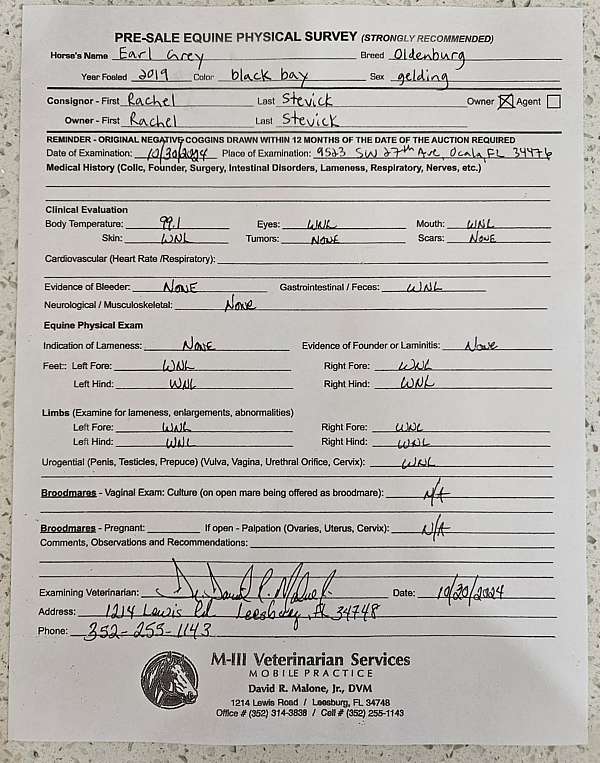 PRE-SALE EQUINE PHYSICAL SURVEY (STRONGLY RECOMMENDED)
Horse's Name Earl Grey Breed Oldenburg
Year Foaled 2019 Color black bay Sex gelding
Consignor - First Rachel Last Stevick Owner ☒ Agent ☐
Owner - First Rachel Last Stevick
REMINDER - ORIGINAL NEGATIVE COGGINS DRAWN WITHIN 12 MONTHS OF THE DATE OF THE AUCTION REQUIRED
Date of Examination: 10/20/2024 Place of Examination: 9523 SW 27th Ave, Ocala, FL 34476
Medical History (Colic, Founder, Surgery, Intestinal Disorders, Lameness, Respiratory, Nerves, etc.)
Clinical Evaluation
Body Temperature: 99.1 Eyes: WNL Mouth: WNL
Skin: WNL Tumors: NONE Scars: NONE
Cardiovascular (Heart Rate /Respiratory):
Evidence of Bleeder: NONE Gastrointestinal / Feces: WNL
Neurological / Musculoskeletal: None
Equine Physical Exam
Indication of Lameness: NONE Evidence of Founder or Laminitis: None
Feet:: Left Fore: WNL Right Fore: WNL
Left Hind: WNL Right Hind: WNL
Limbs (Examine for lameness, enlargements, abnormalities)
Left Fore: WNL Right Fore: WNL
Left Hind: WNL Right Hind: WNL
Urogential (Penis, Testicles, Prepuce) (Vulva, Vagina, Urethral Orifice, Cervix): WNL
Broodmares - Vaginal Exam: Culture (on open mare being offered as broodmare): N/A
Broodmares - Pregnant: If open - Palpation (Ovaries, Uterus, Cervix): N/A
Comments, Observations and Recommendations:
Examining Veterinarian: Dr David R. Malone Jr. Date: 10/20/2024
Address: 1214 Lewis Rd Leesburg, FL 34748
Phone: 352-255-1143
M-III Veterinarian Services
MOBILE PRACTICE
David R. Malone, Jr., DVM
1214 Lewis Road / Leesburg, FL 34748
Office # (352) 314-3838 / Cell # (352) 255-1143